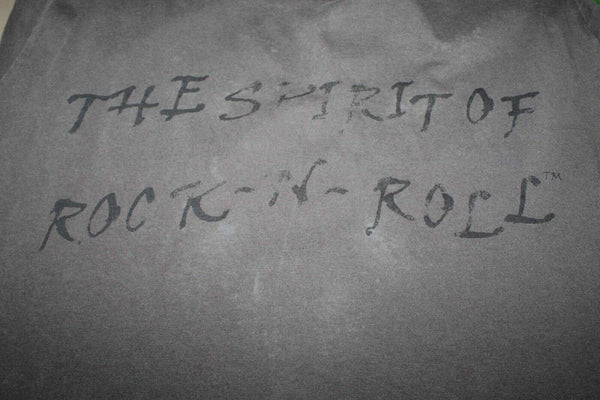 THE SPIRIT OF
ROCK-N-ROLL™